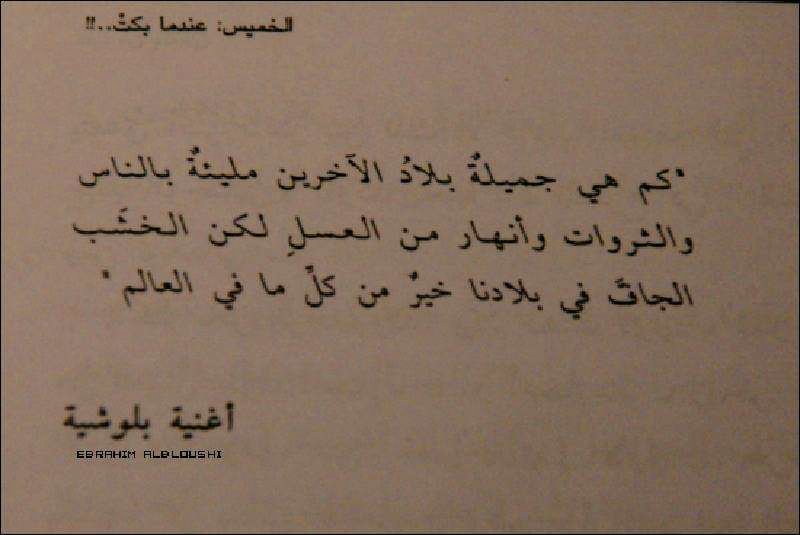 الخميس: عندما بكتْ..!!
"كم هي جميلةٌ بلادُ الآخرين مليئةٌ بالناس
والثروات وأنهار من العسلِ لكن الخشَب
الجافَّ في بلادنا خيرٌ من كلِّ ما في العالم"
أغنية بلوشية
EBRAHIM ALBLOUSHI